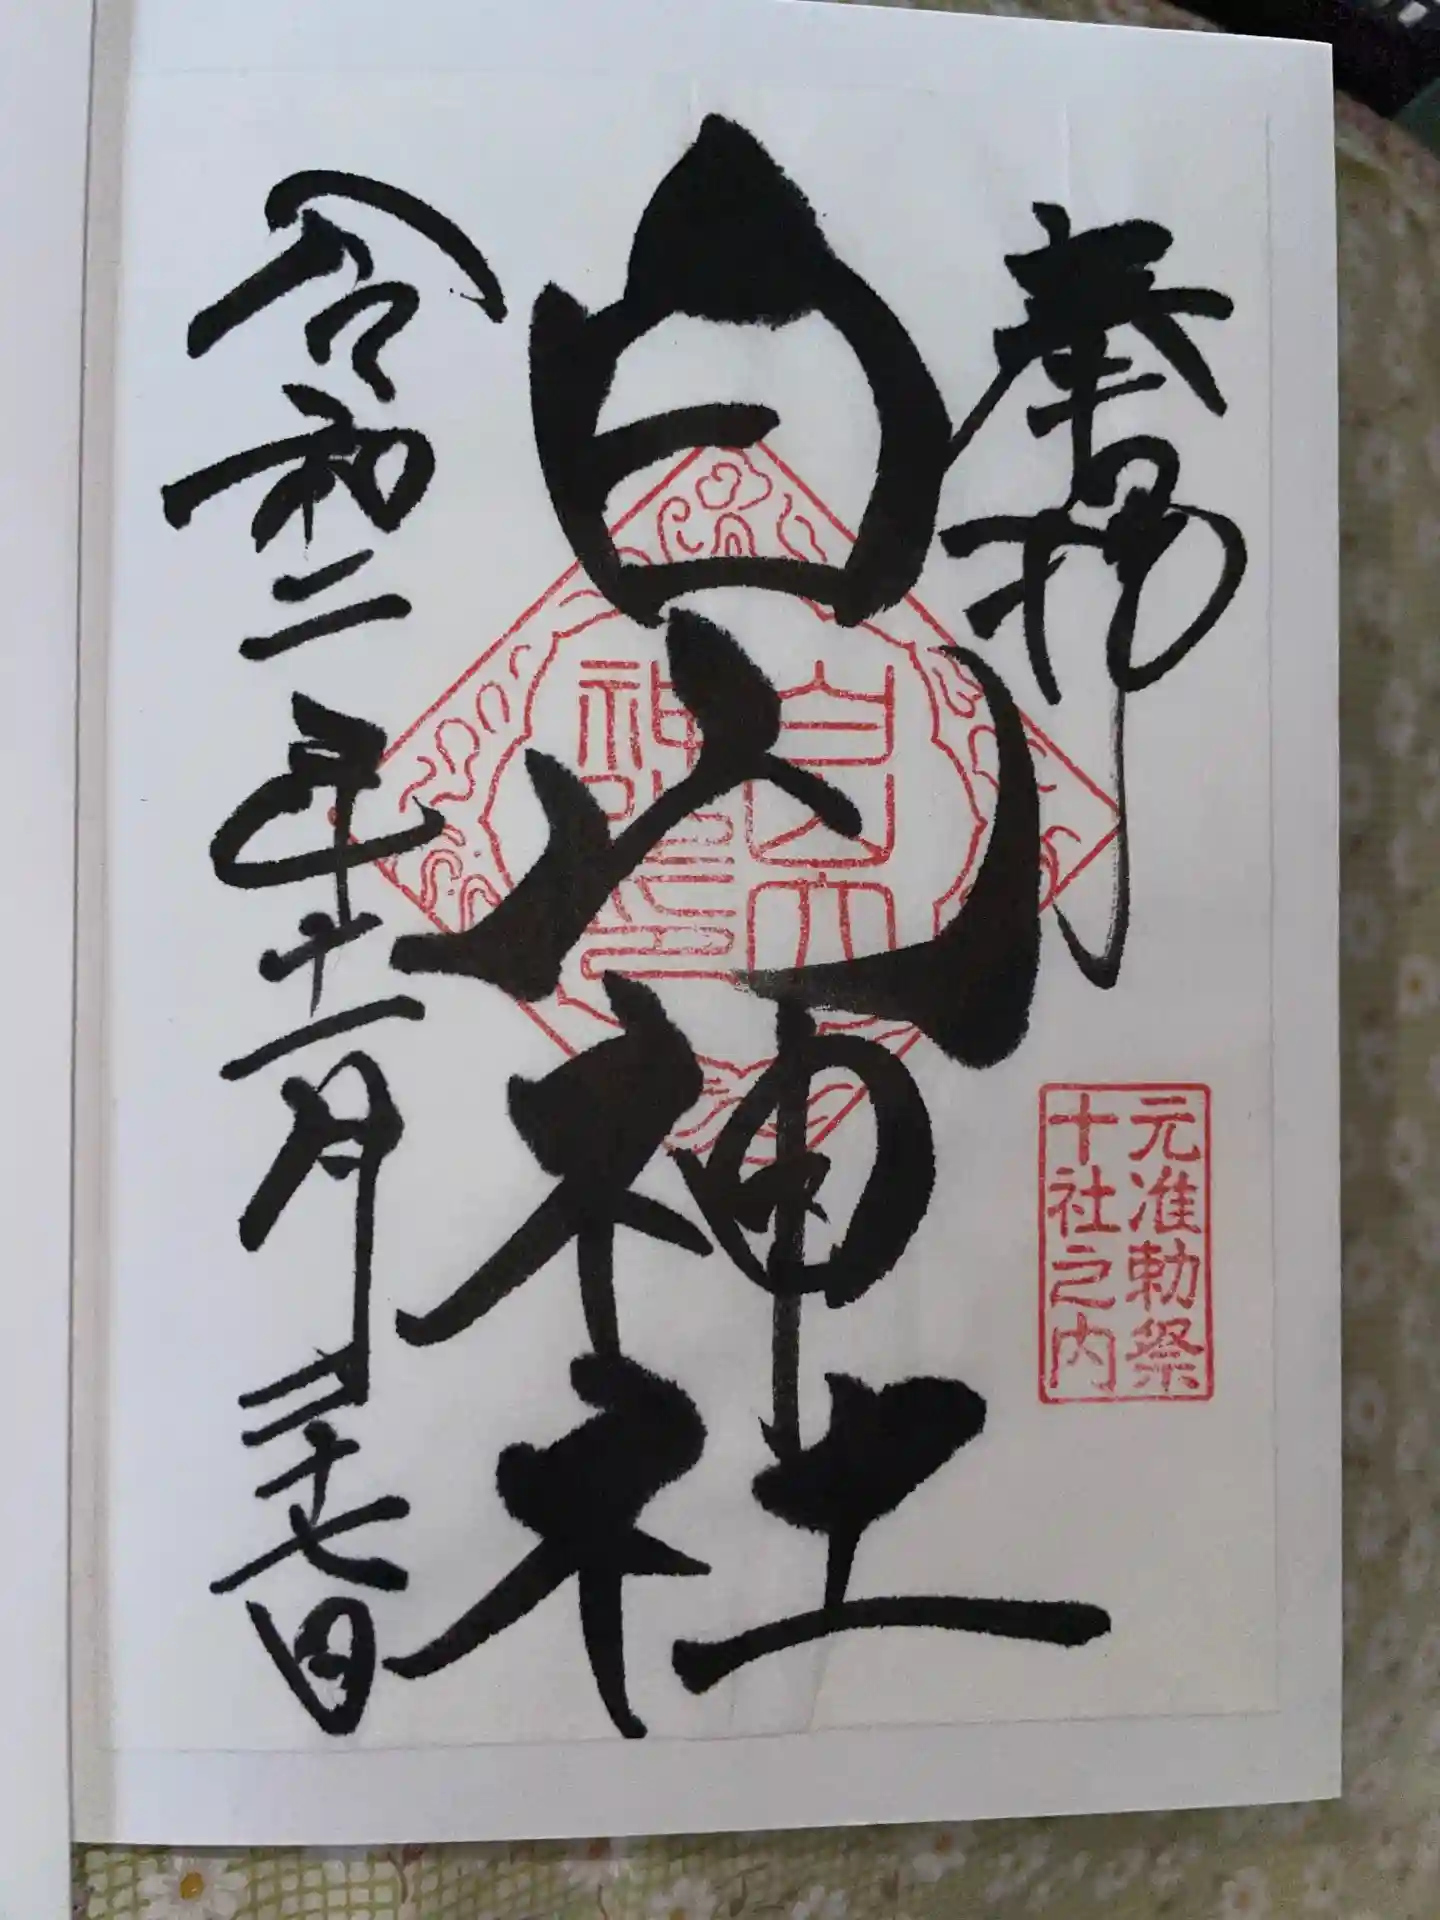 奉拝
元准勅祭
十社之内
白山神社
令和二年十一月二十七日